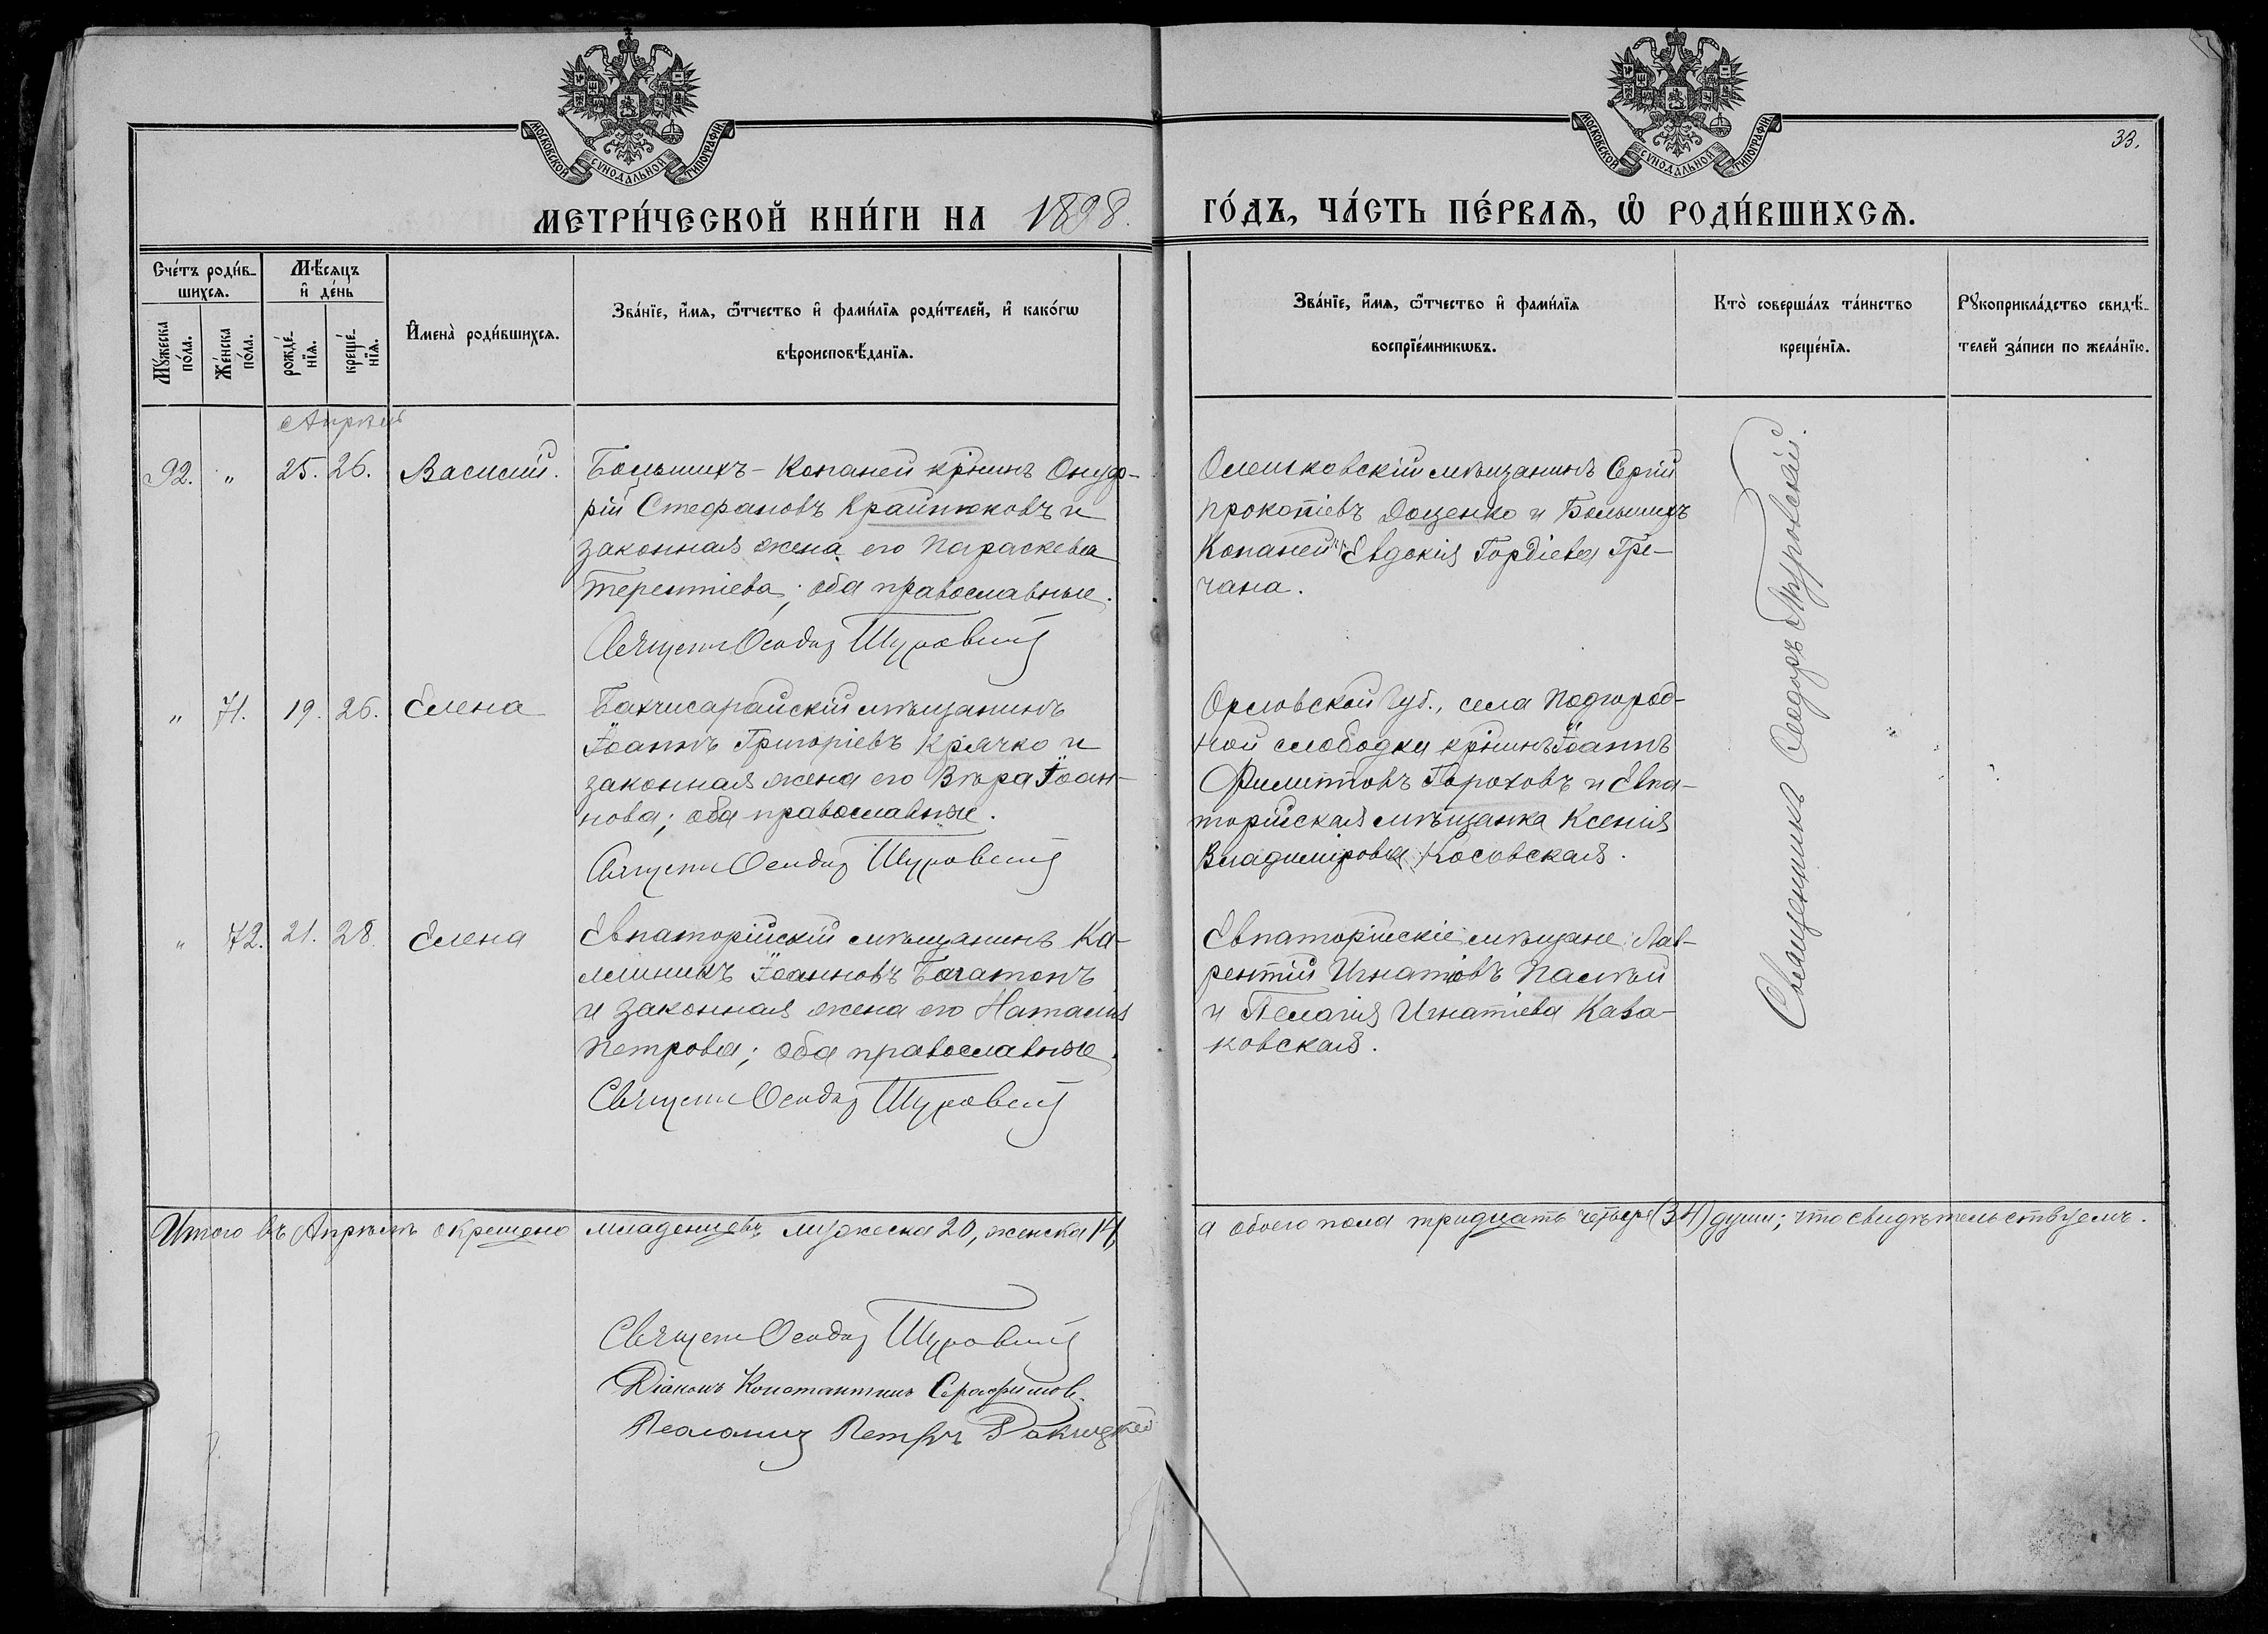 МОСКОВСКОЙ СУНОДАЛЬНОЙ ТИПОГРАФІИ
МОСКОВСКОЙ СУНОДАЛЬНОЙ ТИПОГРАФІИ
33.
МЕТРИ́ЧЕСКОЙ КНИ́ГИ НА 1898. ГО́ДЪ, ЧА́СТЬ ПЕ́РВАѦ, Ѿ РОДИ́ВШИХСѦ.
Сче́тъ роди́в-
шихсѧ.
Мꙋ́жеска по́ла.
Же́нска по́ла.
Мѣ́сѧцъ
и҆ де́нь
рожде́-
нїѧ.
креще́-
нїѧ.
И҆мена̀ роди́вшихсѧ.
Зва́нїе, и҆́мѧ, ѻ҆́тчество и҆ фами́лїѧ роди́телей, и҆ како́гѡ
вѣроисповѣ́данїѧ.
Зва́нїе, и҆́мѧ, ѻ҆́тчество и҆ фами́лїѧ
воспрїе́мникѡвъ.
Кто̀ соверша́лъ та́инство
креще́нїѧ.
Рꙋкоприкла́дство свидѣ́-
телей за́писи по жела́нїю.
Апрѣль
92. " 25. 26. Василій.
Большихъ-Копаней кр̃нинъ Онуф-
рій Стефановъ Крайнюковъ и
законная жена его Параскева
Терентіева; оба православные.
Священ Ѳеодоръ Туровскій
Олешковскій мѣщанинъ Сергій
Прокопіевъ Доценко и Большихъ
Копаней Евдокія Гордіева Гре-
чана.
" 71. 19. 26. Елена
Бахчисарайскій мѣщанинъ
Іоаннъ Григоріевъ Крячко и
законная жена его Вѣра Іоан-
нова; оба православные.
Священ Ѳеодоръ Туровскій
Орловской Губ., села Подгород-
ной слободки кр̃нинъ Іоаннъ
Филипповъ Гороховъ и Евпа-
торійская мѣщанка Ксенія
Владимірова Косовская.
" 72. 21. 28. Елена
Евпаторійскій мѣщанинъ Ка-
линникъ Іоанновъ Багатопъ
и законная жена его Наталія
Петрова; оба православные.
Священ Ѳеодоръ Туровскій
Евпаторійскіе мѣщане: Лав-
рентій Игнатіевъ Палѣй
и Пелагія Игнатіева Каза-
ковская.
Священникъ Ѳеодоръ Туровскій.
Итого въ Апрѣлѣ окрещено младенцевъ мужеска 20, женска 14, а обоего пола тридцать четыре (34) души; что свидѣтельствуемъ.
Священ Ѳеодоръ Туровскій
Діаконъ Константинъ Серафимовъ
Псаломщ Петръ Ракицкій